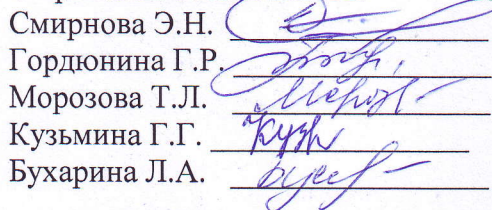 Смирнова Э.Н.
Гордюнина Г.Р.
Морозова Т.Л.
Кузьмина Г.Г. Кузм
Бухарина Л.А.